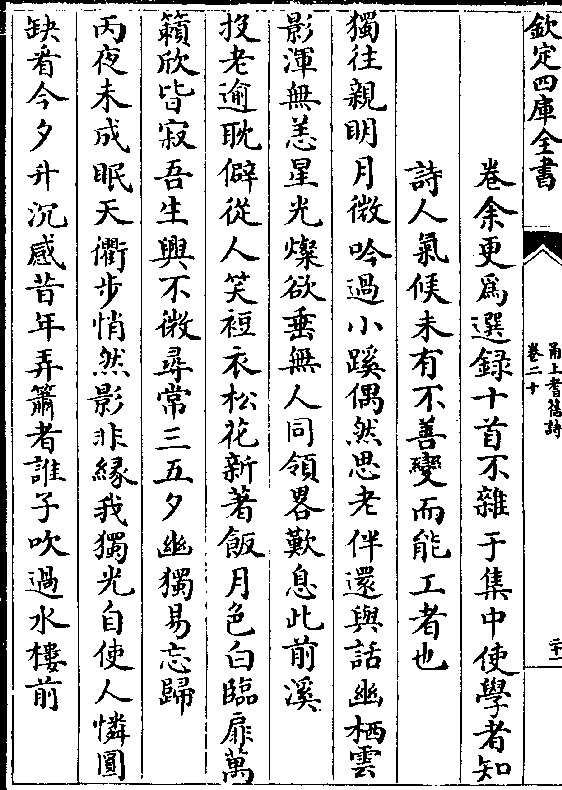 欽定四庫全書
甬上耆舊詩
卷二十
二十一
卷余更為選録十首不雜于集中使學者知
詩人氣候未有不善變而能工者也
獨往親明月微吟過小蹊偶然思老伴還與話幽栖雲
影渾無恙星光燦欲垂無人同領畧歎息此前溪
投老逾耽僻從人笑裋衣松花新著飯月色白臨扉萬
籟欣皆寂吾生興不微尋常三五夕幽獨易忘歸
丙夜未成眠天衢步悄然影非緣我獨光自使人憐圓
缺看今夕升沉感昔年弄簫者誰子吹過水樓前